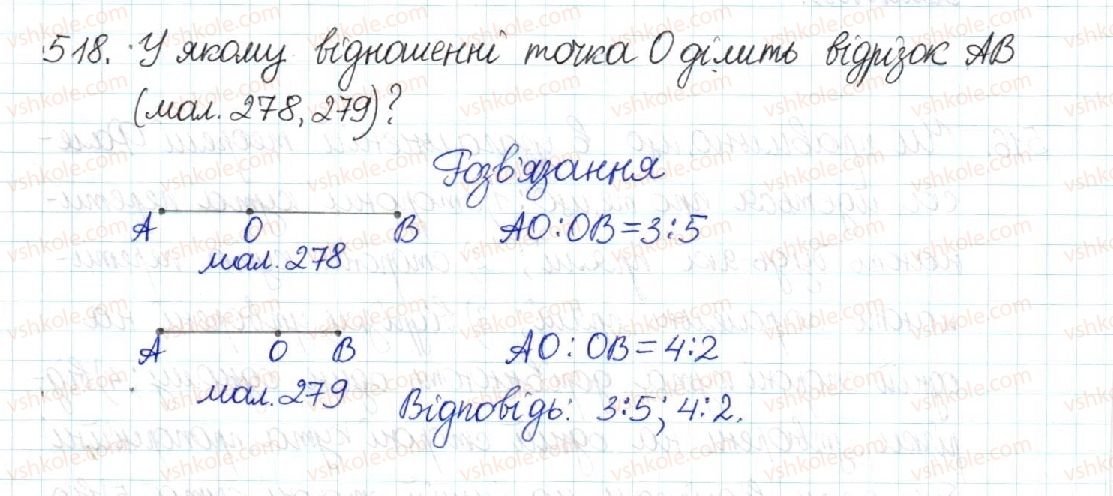 518. У якому відношенні точка О ділить відрізок АВ
(мал. 278, 279)?
Розв'язання
А О В АО:ОВ=3:5
мал. 278
А О В АО:ОВ=4:2
мал. 279
Відповідь: 3:5; 4:2.
vshkole.com